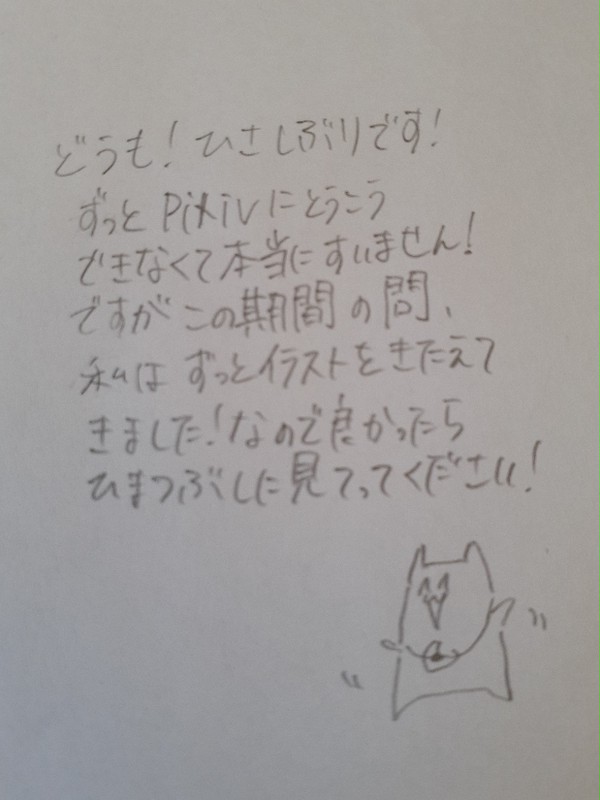 どうも!ひさしぶりです!
ずっとPixivにとうこう
できなくて本当にすいません!
ですがこの期間の間、
私はずっとイラストをきたえて
きました!なので良かったら
ひまつぶしに見てってください!